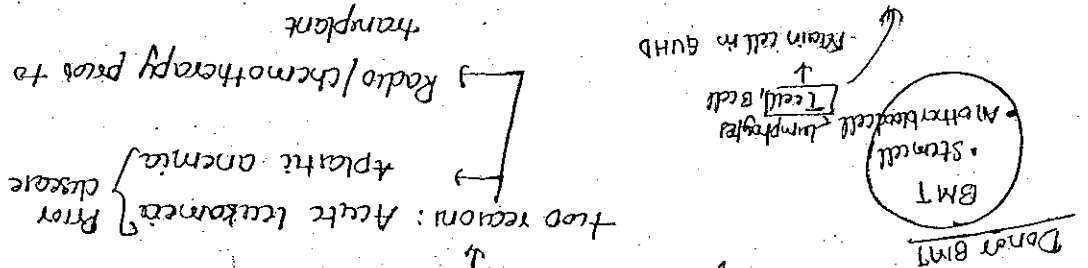 Donor BMT
BMT
• Stem cell
• Another blood cell
lymphocytes
T cell, B cell
Main cell in GVHD
two reasons: Acute leukaemia
Aplastic anemia
Prior
disease
Radio/chemotherapy prior to
transplant